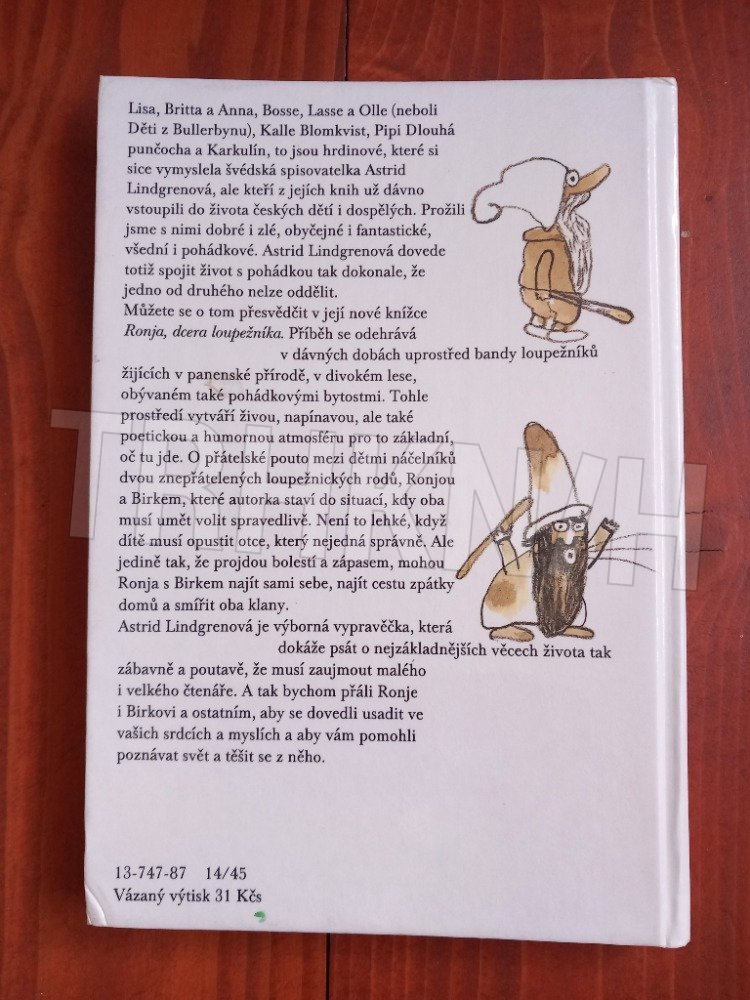 Lisa, Britta a Anna, Bosse, Lasse a Olle (neboli
Děti z Bullerbynu), Kalle Blomkvist, Pipi Dlouhá
punčocha a Karkulín, to jsou hrdinové, které si
sice vymyslela švédská spisovatelka Astrid
Lindgrenová, ale kteří z jejích knih už dávno
vstoupili do života českých dětí i dospělých. Prožili
jsme s nimi dobré i zlé, obyčejné i fantastické,
všední i pohádkové. Astrid Lindgrenová dovede
totiž spojit život s pohádkou tak dokonale, že
jedno od druhého nelze oddělit.
Můžete se o tom přesvědčit v její nové knížce
Ronja, dcera loupežníka. Příběh se odehrává
v dávných dobách uprostřed bandy loupežníků
žijících v panenské přírodě, v divokém lese,
obývaném také pohádkovými bytostmi. Tohle
prostředí vytváří živou, napínavou, ale také
poetickou a humornou atmosféru pro to základní,
oč tu jde. O přátelské pouto mezi dětmi náčelníků
dvou znepřátelených loupežnických rodů, Ronjou
a Birkem, které autorka staví do situací, kdy oba
musí umět volit spravedlivě. Není to lehké, když
dítě musí opustit otce, který nejedná správně. Ale
jedině tak, že projdou bolestí a zápasem, mohou
Ronja s Birkem najít sami sebe, najít cestu zpátky
domů a smířit oba klany.
Astrid Lindgrenová je výborná vypravěčka, která
dokáže psát o nejzákladnějších věcech života tak
zábavně a poutavě, že musí zaujmout malého
i velkého čtenáře. A tak bychom přáli Ronje
i Birkovi a ostatním, aby se dovedli usadit ve
vašich srdcích a myslích a aby vám pomohli
poznávat svět a těšit se z něho.
13-747-87 14/45
Vázaný výtisk 31 Kčs